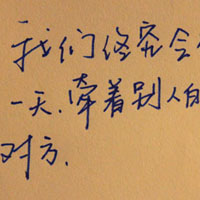 我们终究会
一天.牵着别人的
对方.